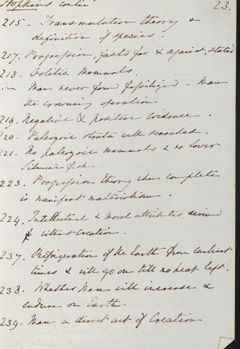 Hopkins contd 23.
215. Transmutation theory &
definition of species.
217. Progression, facts for & against, stated
218. Oolitic Mammals.
— Man never found fossilized – Man
the crowning operation
219. Negative & positive Evidence.
220. Paleozoic Strata well searched.
221. No paleozoic mammals & no lower
Silurian fish.
223. Progression theory when complete
is manifest materialism.
224. Intellectual & moral attributes
& without Creation.
237. Refrigeration of the Earth from earliest
times & will go on till no heat left.
238. Whether Man will increase &
endure on Earth.
239. Man a direct act of Creation